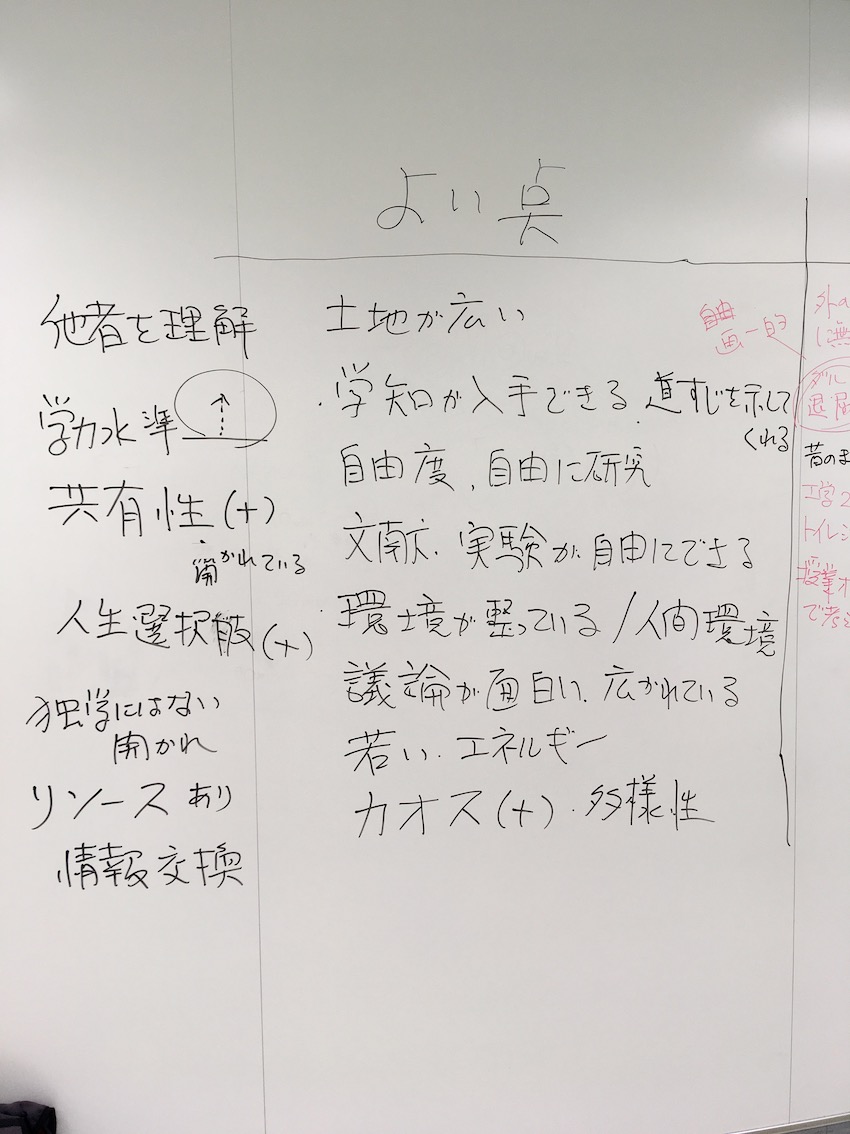 よい点
他者を理解
学力水準
共有性(+)
・開かれている
人生選択肢(+)
独学にはない
開かれ
リソースあり
情報交換
土地が広い
・学知が入手できる、道すじを示して
くれる
自由度、自由に研究
文献、実験が自由にできる
・環境が整っている/人間環境
議論が面白い、広がれている
若い・エネルギー
カオス(+)・多様性
自由
画一的
外の
昔のま
工学2
トイレ
授業オ
で考え